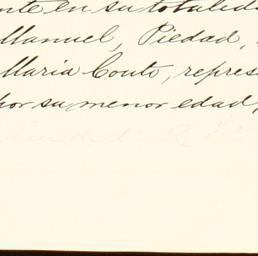 nte en su totalida
Manuel, Piedad,
Maria Couto, represe
por su menor edad,